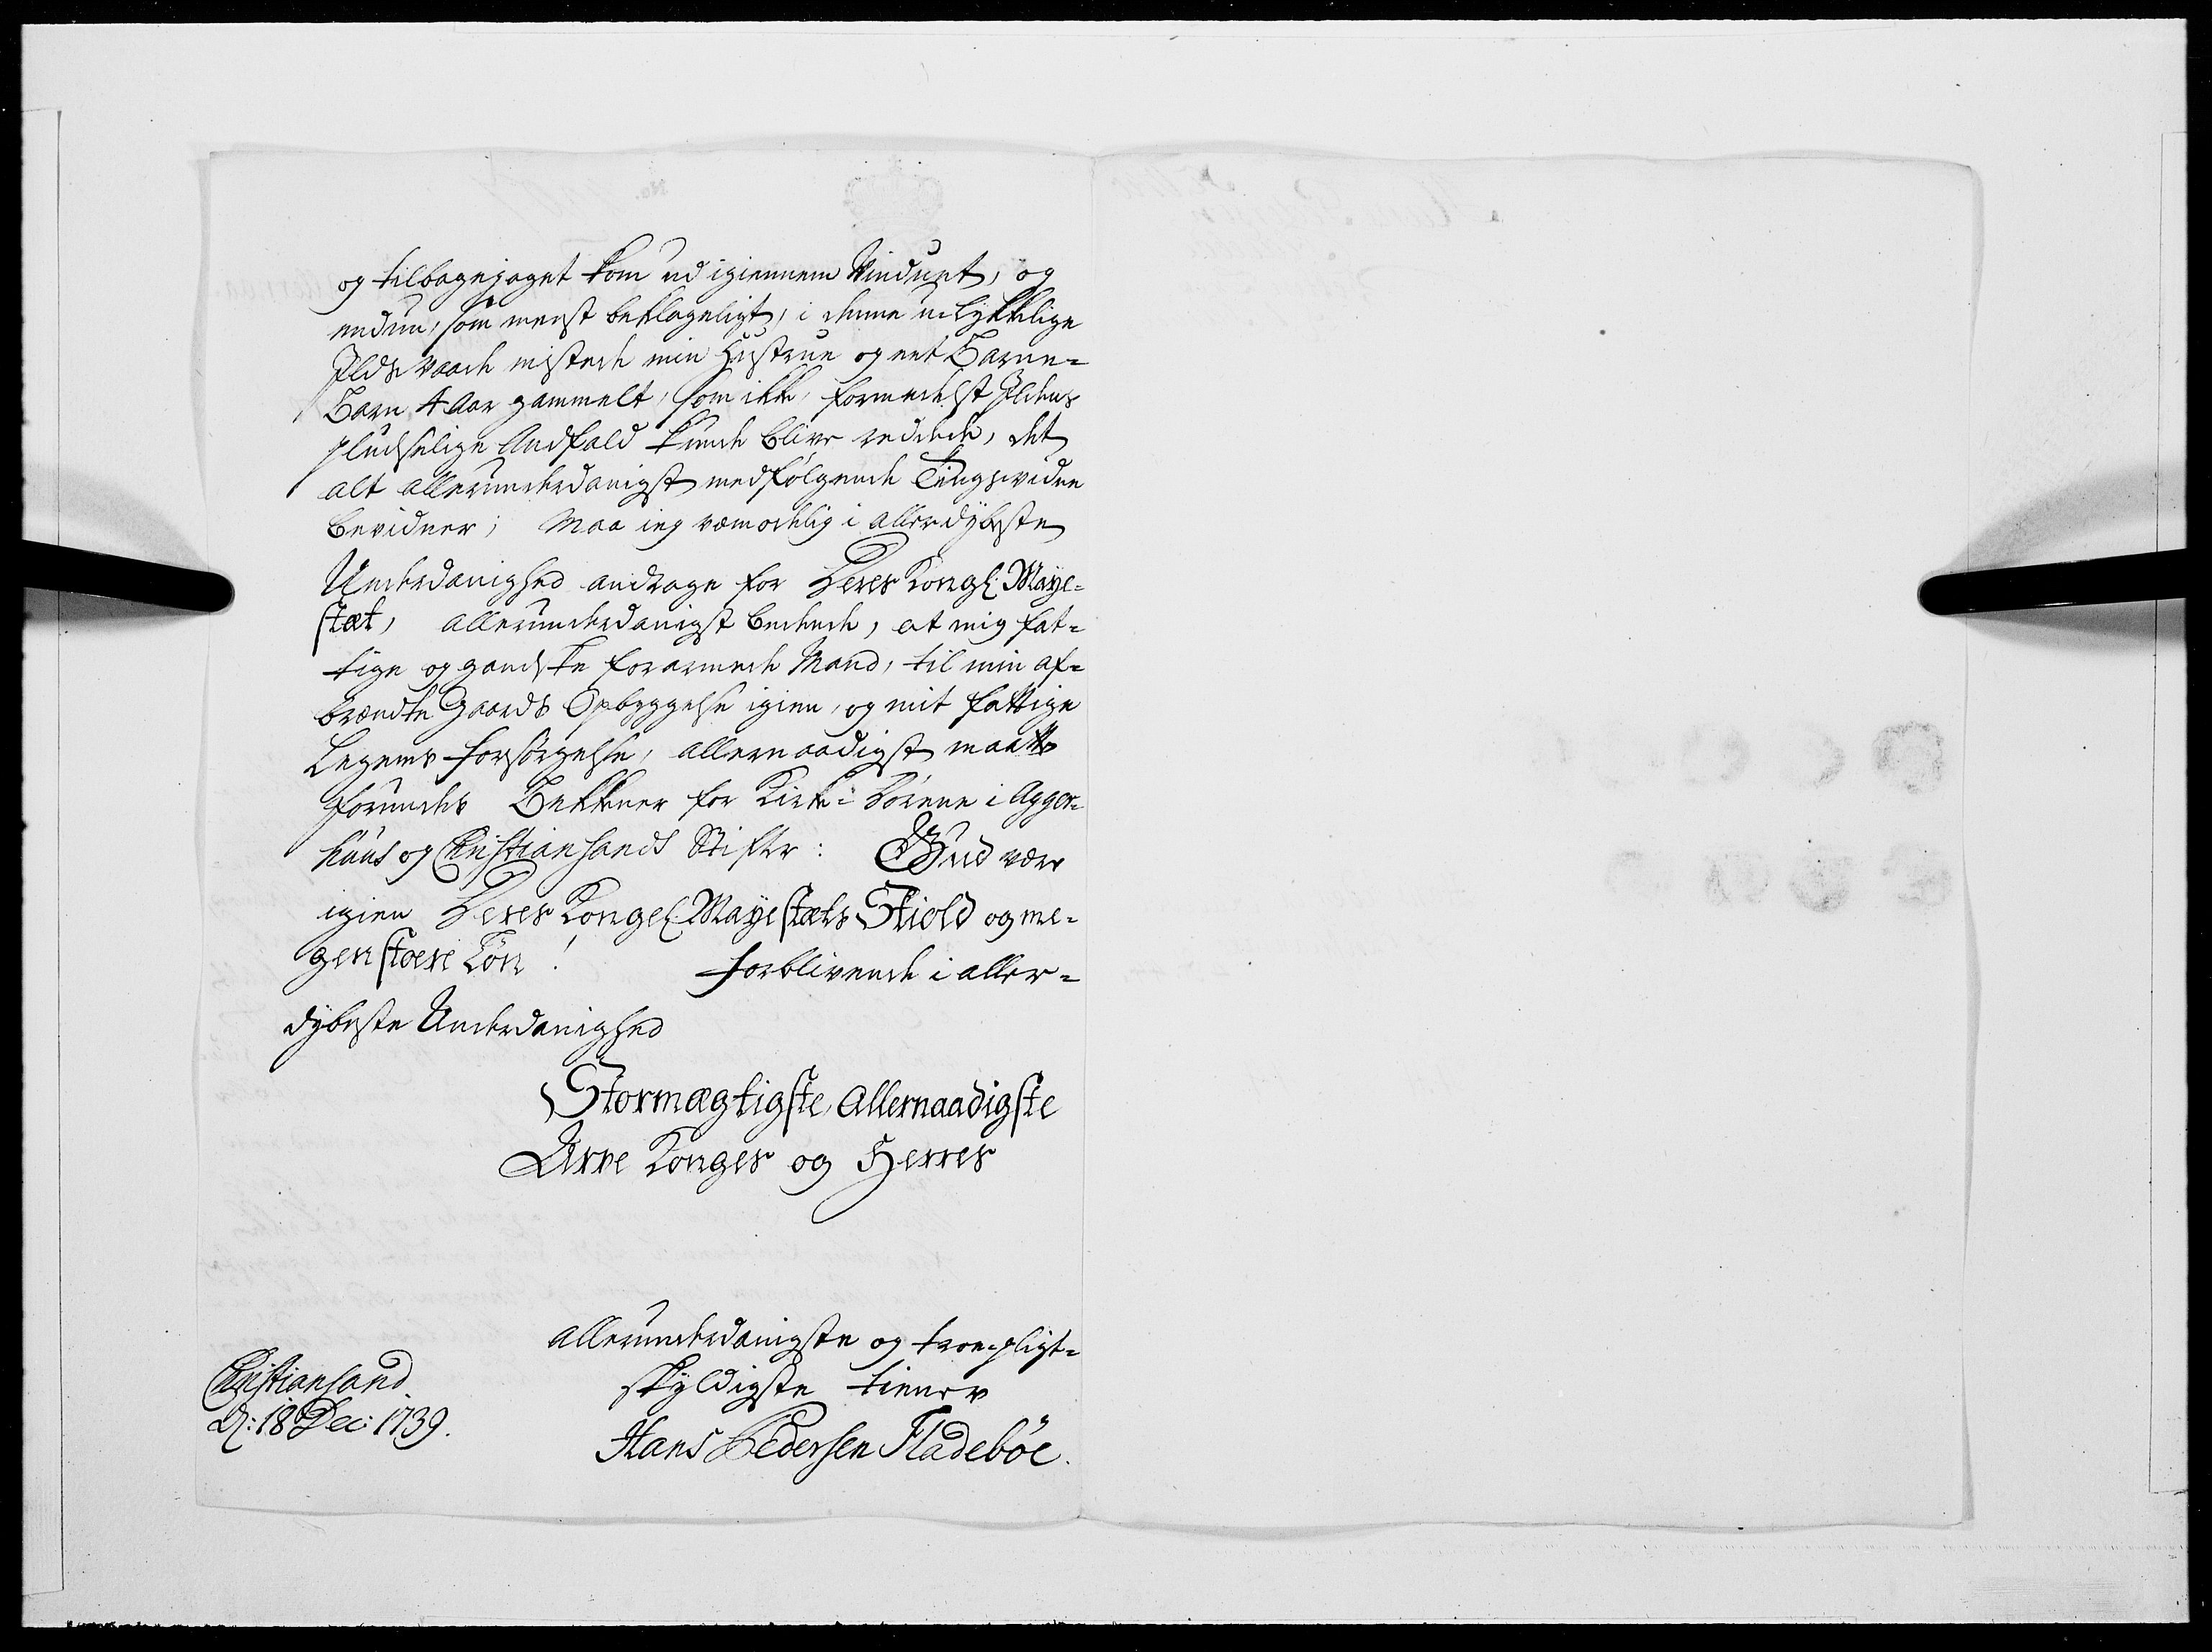 og tilbagejaget kom ud igiennem Vinduet, og
endnu, som meest beklageligt, i denne ulykkelige
Ilds Vaade mistede min Hustrue og eet Barne=
Barn 4 Aar gammelt, som ikke, formedelst Ildens
pludselige Andfald kunde blive reddede, det
alt allerunderdanigst medfølgende Tingsvidne
bevidner; Maa ieg vemodelig i allerdybeste
Underdanighed andrage for Deres Kongl: Maye=
stæt, allerunderdanigst bedende, at mig fat=
tige og gandske forarmede Mand, til min af=
brændte Gaards Opbyggelse igien, og mit fattige
Legems forsørgelse, allernaadigst maatte
forundes Bekkener for Kirke=Dørene i Agger=
huus og Christiansands Stifter: Gud være
igien Deres Kongel: Mayestæts Skiold og me=
gen stoere Løn! forblivende i aller=
dybeste Underdanighed
Stormægtigste, Allernaadigste
Arve Konges og Herres
allerunderdanigste og troe=pligt=
skyldigste tienere
Christiansand
d: 18 Dec: 1739.
Hans Pedersen Fladebøe.